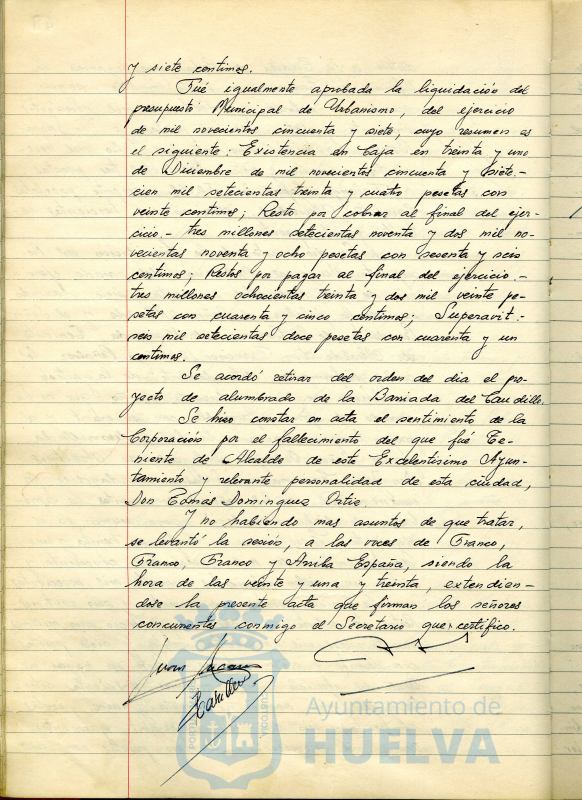 y siete centimos.
Fué igualmente aprobada la liquidación del
presupuesto Municipal de Urbanismo, del ejercicio
de mil novecientos cincuenta y siete, cuyo resumen es
el siguiente: Existencia en Caja en treinta y uno
de Diciembre de mil novecientos cincuenta y siete.-
cien mil setecientas treinta y cuatro pesetas con
veinte centimos; Resto por cobrar al final del ejer-
cicio.- tres millones setecientas noventa y dos mil no-
vecientas noventa y ocho pesetas con sesenta y seis
centimos; Restos por pagar al final del ejercicio.-
tres millones ochocientas treinta y dos mil veinte pe-
setas con cuarenta y cinco centimos; Superavit.-
seis mil setecientas doce pesetas con cuarenta y un
centimos.
Se acordó retirar del orden del dia el pro-
yecto de alumbrado de la Barriada del Caudillo.
Se hizo constar en acta el sentimiento de la
Corporación por el fallecimiento del que fué Te-
niente de Alcalde de este Excelentísimo Ayun-
tamiento y relevante personalidad de esta ciudad,
Don Tomás Dominguez Ortiz
Y no habiendo mas asuntos de que tratar,
se levantó la sesión, a las voces de Franco,
Franco, Franco y Arriba España, siendo la
hora de las veinte y una y treinta, extendien-
dose la presente acta que firman los señores
concurrentes conmigo el Secretario que certifico.
Ayuntamiento de
HUELVA